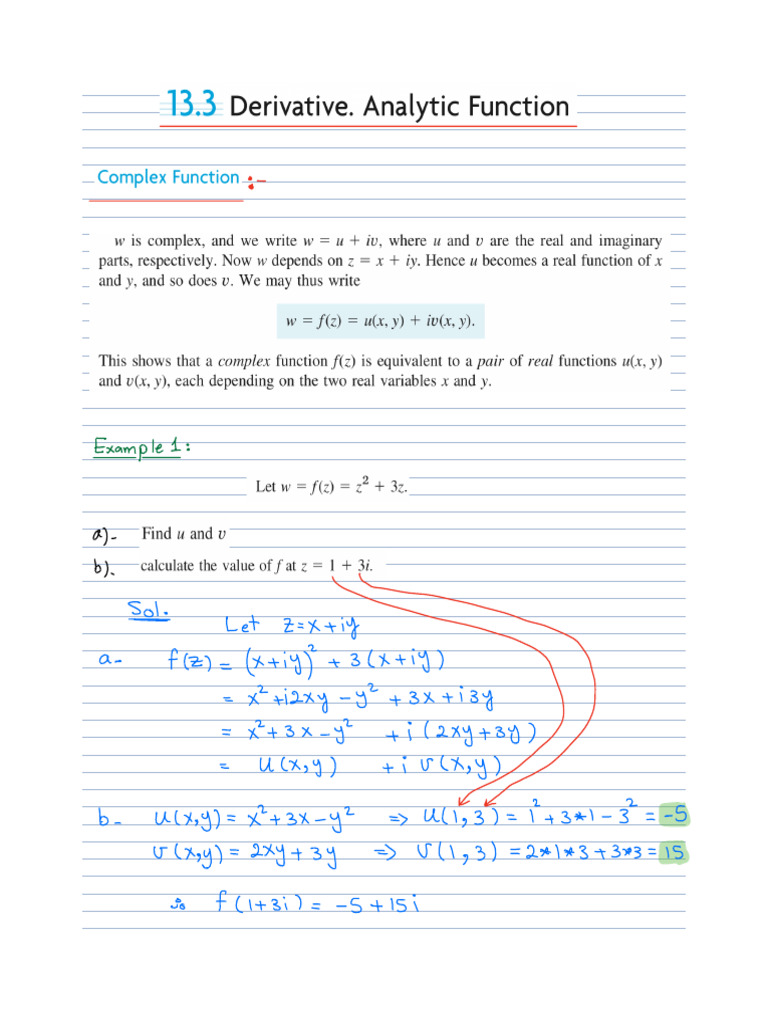 13.3 Derivative. Analytic Function
Complex Function :-
w is complex, and we write w = u + iv, where u and v are the real and imaginary
parts, respectively. Now w depends on z = x + iy. Hence u becomes a real function of x
and y, and so does v. We may thus write
w = f(z) = u(x, y) + iv(x, y).
This shows that a complex function f(z) is equivalent to a pair of real functions u(x, y)
and v(x, y), each depending on the two real variables x and y.
Example 1:
Let w = f(z) = z² + 3z.
a)- Find u and v
b). calculate the value of f at z = 1 + 3i.
Sol.
Let z=x+iy
a- f(z) = (x+iy)² + 3(x+iy)
= x²+i2xy -y² + 3x + i3y
= x²+3x-y² + i(2xy+3y)
= u(x,y) + i v(x,y)
b- u(x,y) = x²+3x-y² => u(1,3) = 1²+3*1-3² = -5
v(x,y) = 2xy+3y => v(1,3) = 2*1*3+3*3 = 15
∴ f(1+3i) = -5+15i